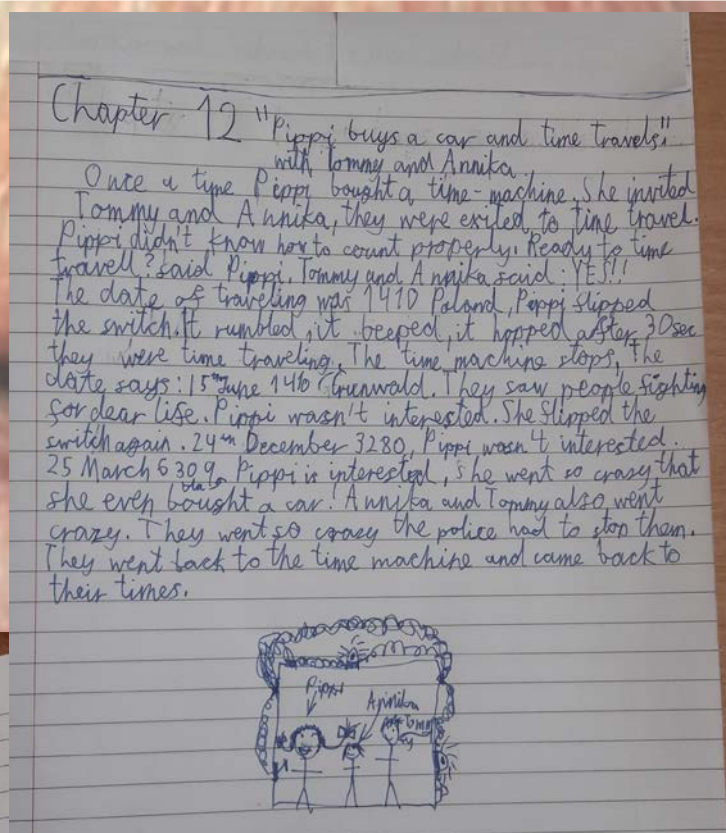 Chapter 12 "Pippi buys a car and time travels"
with Tommy and Annika
Once a tyme Pippi bought a time-machine. She invited
Tommy and Annika, they were exited to time travel.
Pippi didn't know how to count properly. Ready to time
travell? said Pippi. Tommy and Annika said: YES!!
The date of traveling was 1410 Poland, Pippi flipped
the switch. It rumbled, it beeped, it hopped after 30sec
they were time traveling. The time machine stops, the
date says: 15th June 1410 Grunwald. They saw people fighting
for dear life. Pippi wasn't interested. She flipped the
switch again. 24th December 3280, Pippi wasn't interested.
25 March 6309. Pippi is interested, she went so crasy that
she even bought a car! Annika and Tommy also went
crazy. They went so crazy the police had to stop them.
They went back to the time machine and came back to
their times.
Pippi
Annika
Tommy